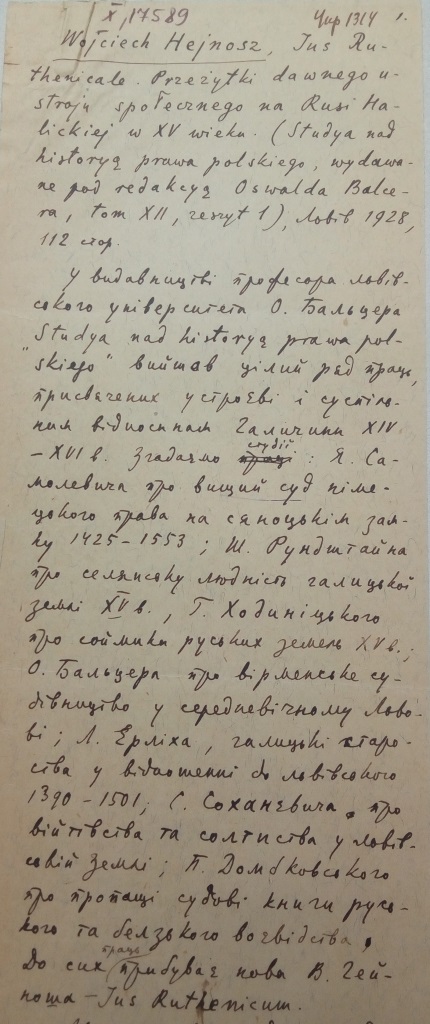 X, 17589
Чир 1314 1.
Wojciech Hejnosz, Ius Ru-
thenicale. Przeżytki dawnego u-
stroju społecznego na Rusi Ha-
lickiej w XV wieku. (Studya nad
historyą prawa polskiego, wydawa-
ne pod redakcyą Oswalda Balce-
ra, tom XII, zeszyt 1), Львів 1928,
112 стор.
У видавництві професора львів-
ського університета О. Бальцера
„Studya nad historyą prawa pol-
skiego" вийшов цілий ряд праць,
присвячених устроєві і суспіль-
ним відносинам Галичини XIV
–XVI в. Згадаємо студії : Я. Са-
молевича про вищий суд німе-
цького права на сяноцькім зам-
ку 1425–1553 ; Ш. Рундштайна
про селянську людність галицької
землі XV в., Г. Ходиніцького
про соймики руських земель XV в.;
О. Бальцера про вірменське су-
дівництво у середневічному Льво-
ві ; Л. Ерліха, галицькі старо-
ства у відношенні до львівського
1390–1501; С. Соханевича, про
війтівства та солтиства у львів-
ській землі ; П. Домбковського
про пропащі судові книги русь-
кого та белзького воєвідства.
До сих праць прибуває нова В. Гей-
ноша – Ius Ruthenicum.